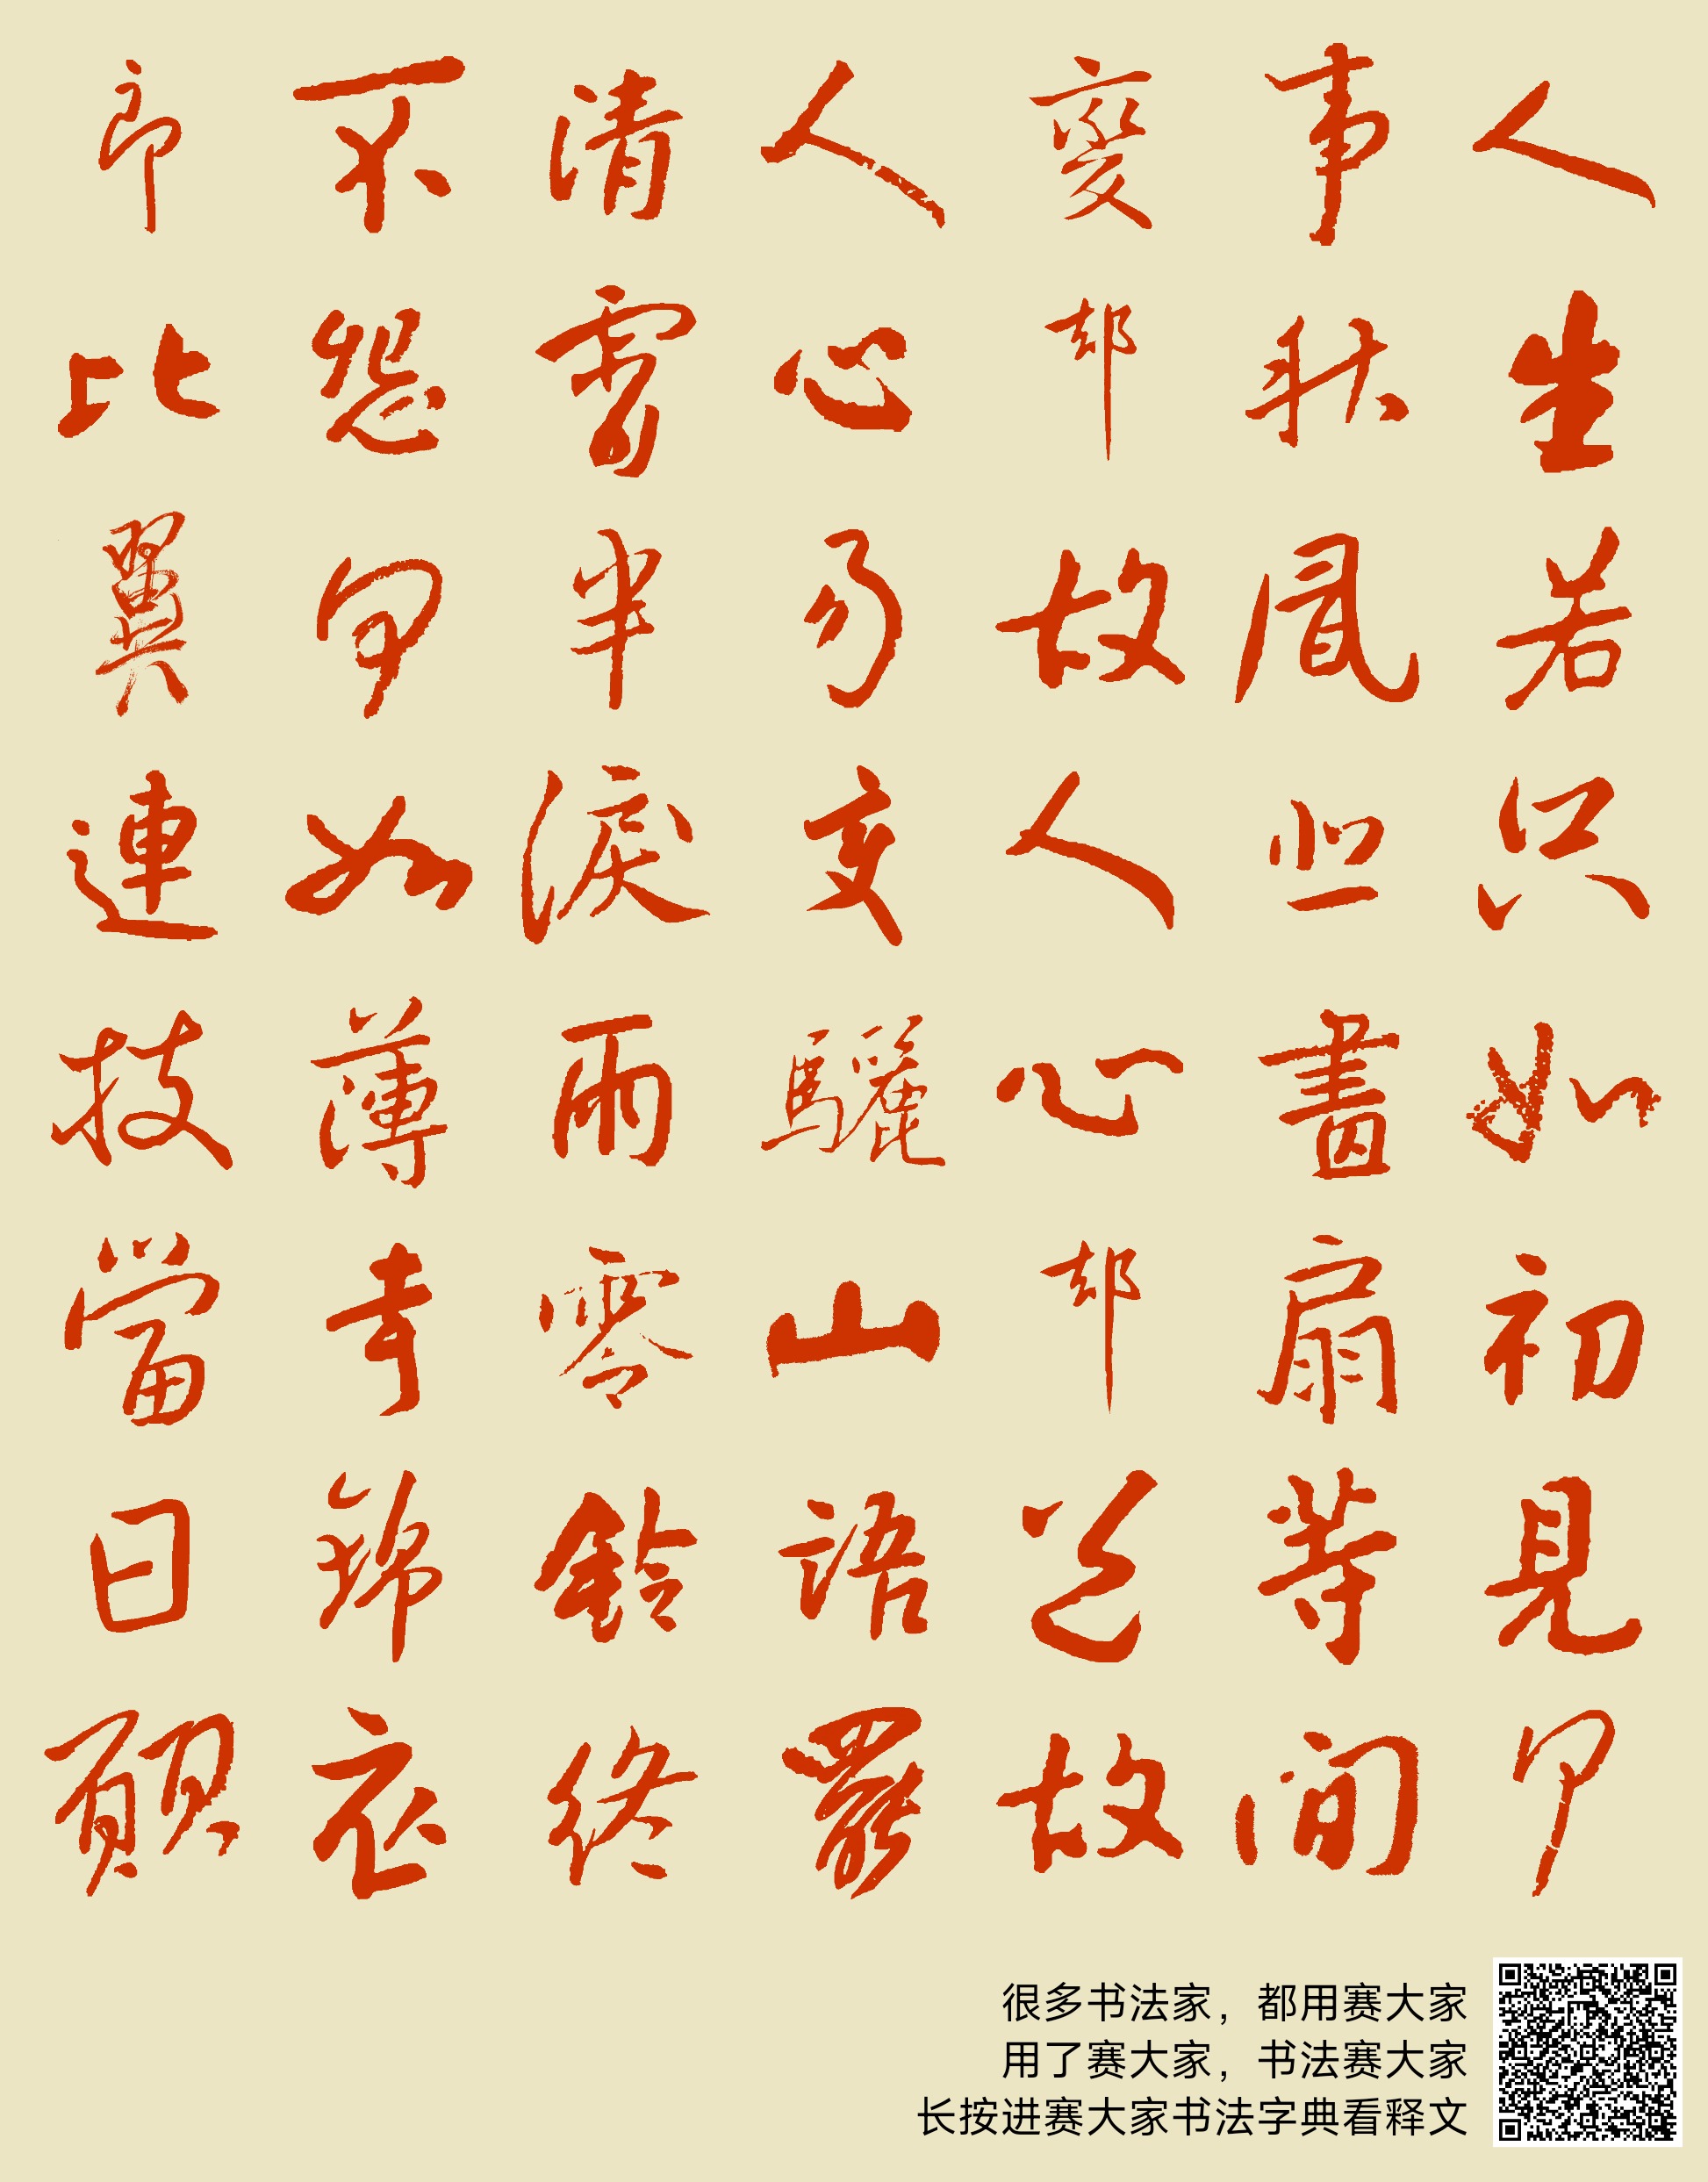 人生若只如初見何
事秋風悲畫扇等間
變却故人心却道故
人心易变驪山語罷
清宵半淚雨零鈴終
不怨何如薄幸錦衣
郎比翼連枝當日願
很多书法家，都用赛大家
用了赛大家，书法赛大家
长按进赛大家书法字典看释文